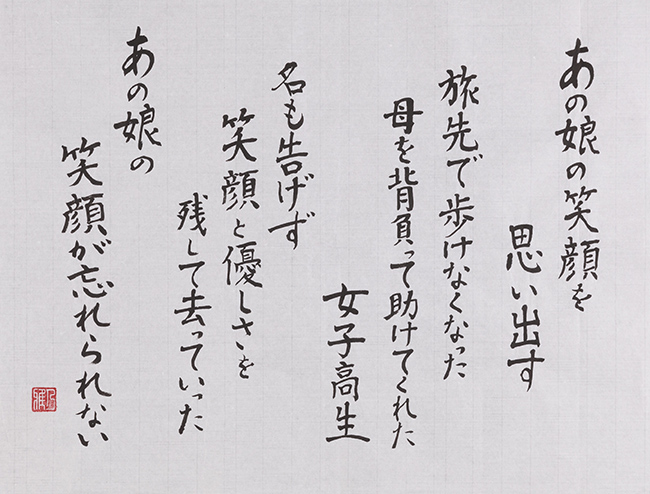 あの娘の笑顔を
思い出す
旅先で歩けなくなった
母を背負って助けてくれた
女子高生
名も告げず
笑顔と優しさを
残して去っていった
あの娘の
笑顔が忘れられない